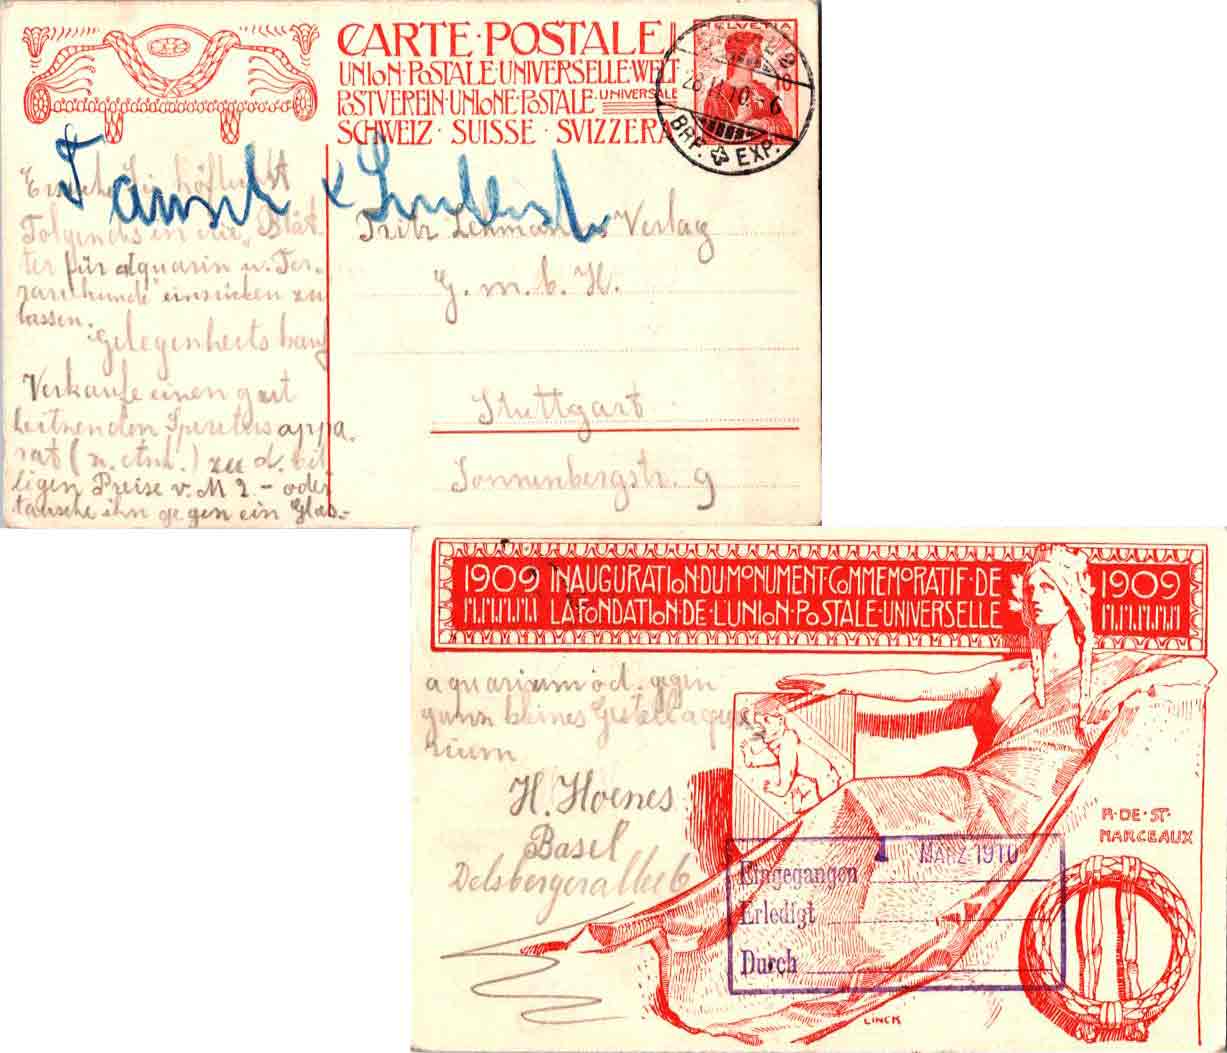 CARTE·POSTALE
UNION·POSTALE·UNIVERSELLE·WELT
POSTVEREIN·UNIONE·POSTALE·UNIVERSALE
SCHWEIZ·SUISSE·SVIZZERA
HELVETIA
10
2
28.II.10.-6
BRF. EXP.
Tausch &
Ersuche Sie höflichst
Folgends in die „Blät
ter für Aquarin u. Ter-
rarikunde" einrücken zu
lassen.
Gelegenheitskauf
Verkaufe einen gut
heitzenden Spiritusappa-
rat (n. ) zu d. bil
ligen Preise v. M 2.- oder
tausche ihn gegen ein Glas-
Fritz Lehmanns Verlag
G. m. b. H.
Stuttgart
Sonnenbergstr. 9
1909 INAUGURATION·DU·MONUMENT·COMMEMORATIF·DE 1909
LA·FONDATION·DE·L'UNION·POSTALE·UNIVERSELLE
aquarium od. gegen
ganz kleines Gestellaqua
rium
H. Hoenes
Basel
Delsbergerallee 6
R·DE·ST·
MARCEAUX
1 MÄRZ 1910
Eingegangen
Erledigt
Durch
LINCK